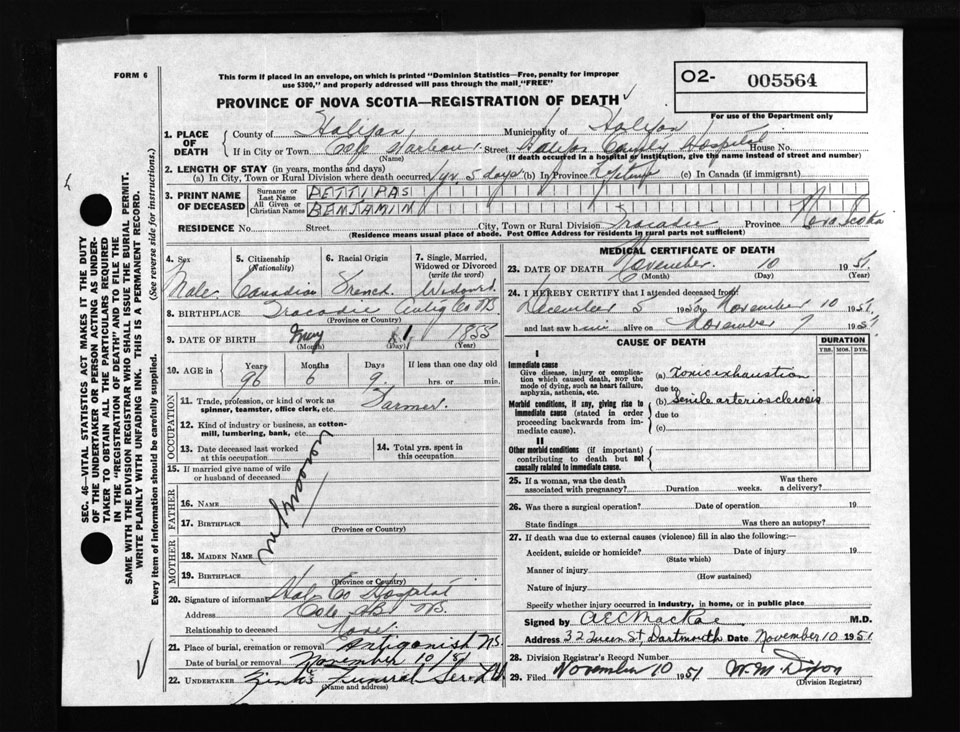 FORM 6
This form if placed in an envelope, on which is printed "Dominion Statistics—Free, penalty for improper
use $300," and properly addressed will pass through the mail "FREE"
PROVINCE OF NOVA SCOTIA—REGISTRATION OF DEATH
O2- 005564
For use of the Department only
SEC. 46—VITAL STATISTICS ACT MAKES IT THE DUTY
OF THE UNDERTAKER OR PERSON ACTING AS UNDER-
TAKER TO OBTAIN ALL THE PARTICULARS REQUIRED
IN THE "REGISTRATION OF DEATH" AND TO FILE THE
SAME WITH THE DIVISION REGISTRAR WHO SHALL ISSUE THE BURIAL PERMIT.
WRITE PLAINLY WITH UNFADING INK. THIS IS A PERMANENT RECORD.
Every item of information should be carefully supplied. (See reverse side for instructions.)
1. PLACE OF DEATH County of Halifax Municipality of Halifax
If in City or Town Cole Harbour Street Halifax County Hospital House No.
(Name) (If death occurred in a hospital or institution, give the name instead of street and number)
2. LENGTH OF STAY (in years, months and days)
(a) In City, Town or Rural Division where death occurred 1 yr. 5 days (b) In Province Lifetime (c) In Canada (if immigrant)
3. PRINT NAME OF DECEASED Surname or Last Name PETTIPAS
All Given or Christian Names BENJAMIN
RESIDENCE No. Street City, Town or Rural Division Tracadie Province Nova Scotia
(Residence means usual place of abode. Post Office Address for residents in rural parts not sufficient)
4. Sex Male
5. Citizenship (Nationality) Canadian
6. Racial Origin French
7. Single, Married, Widowed or Divorced (write the word) Widowed
8. BIRTHPLACE Tracadie Antig Co NS
(Province or Country)
9. DATE OF BIRTH May 1 1855
(Month) (Day) (Year)
10. AGE in Years Months Days If less than one day old
96 6 9 hrs. or min.
OCCUPATION
11. Trade, profession, or kind of work as spinner, teamster, office clerk, etc. Farmer
12. Kind of industry or business, as cotton-mill, lumbering, bank, etc.
13. Date deceased last worked at this occupation
14. Total yrs. spent in this occupation
15. If married give name of wife or husband of deceased
unknown
FATHER
16. NAME
17. BIRTHPLACE
(Province or Country)
MOTHER
18. MAIDEN NAME
19. BIRTHPLACE
(Province or Country)
20. Signature of informant Hal. Co Hospital
Address Cole Hb. NS.
Relationship to deceased None
21. Place of burial, cremation or removal Antigonish NS.
Date of burial or removal November 10/51
22. UNDERTAKER Zinks Funeral Ser.
(Name and address)
MEDICAL CERTIFICATE OF DEATH
23. DATE OF DEATH November 10 1951
(Month) (Day) (Year)
24. I HEREBY CERTIFY that I attended deceased from
December 5 1950 to November 10 1951
and last saw him alive on November 9 1951
CAUSE OF DEATH
DURATION
YRS. MOS. DYS.
I
Immediate cause
Give disease, injury or complication which caused death, NOT the mode of dying, such as heart failure, asphyxia, asthenia, etc.
(a) Toxic exhaustion
due to
Morbid conditions, if any, giving rise to immediate cause (stated in order proceeding backwards from immediate cause).
(b) Senile arteriosclerosis
due to
(c)
II
Other morbid conditions (if important) contributing to death but not causally related to immediate cause.
25. If a woman, was the death associated with pregnancy? Duration weeks. Was there a delivery?
26. Was there a surgical operation? Date of operation 19
State findings Was there an autopsy?
27. If death was due to external causes (violence) fill in also the following:—
Accident, suicide or homicide? Date of injury 19
(State which)
Manner of injury
(How sustained)
Nature of injury
Specify whether injury occurred in industry, in home, or in public place
Signed by A E MacRae M.D.
Address 32 Queen St, Dartmouth Date November 10 1951
28. Division Registrar's Record Number
29. Filed November 10 1951 W. M. Dixon
(Division Registrar)